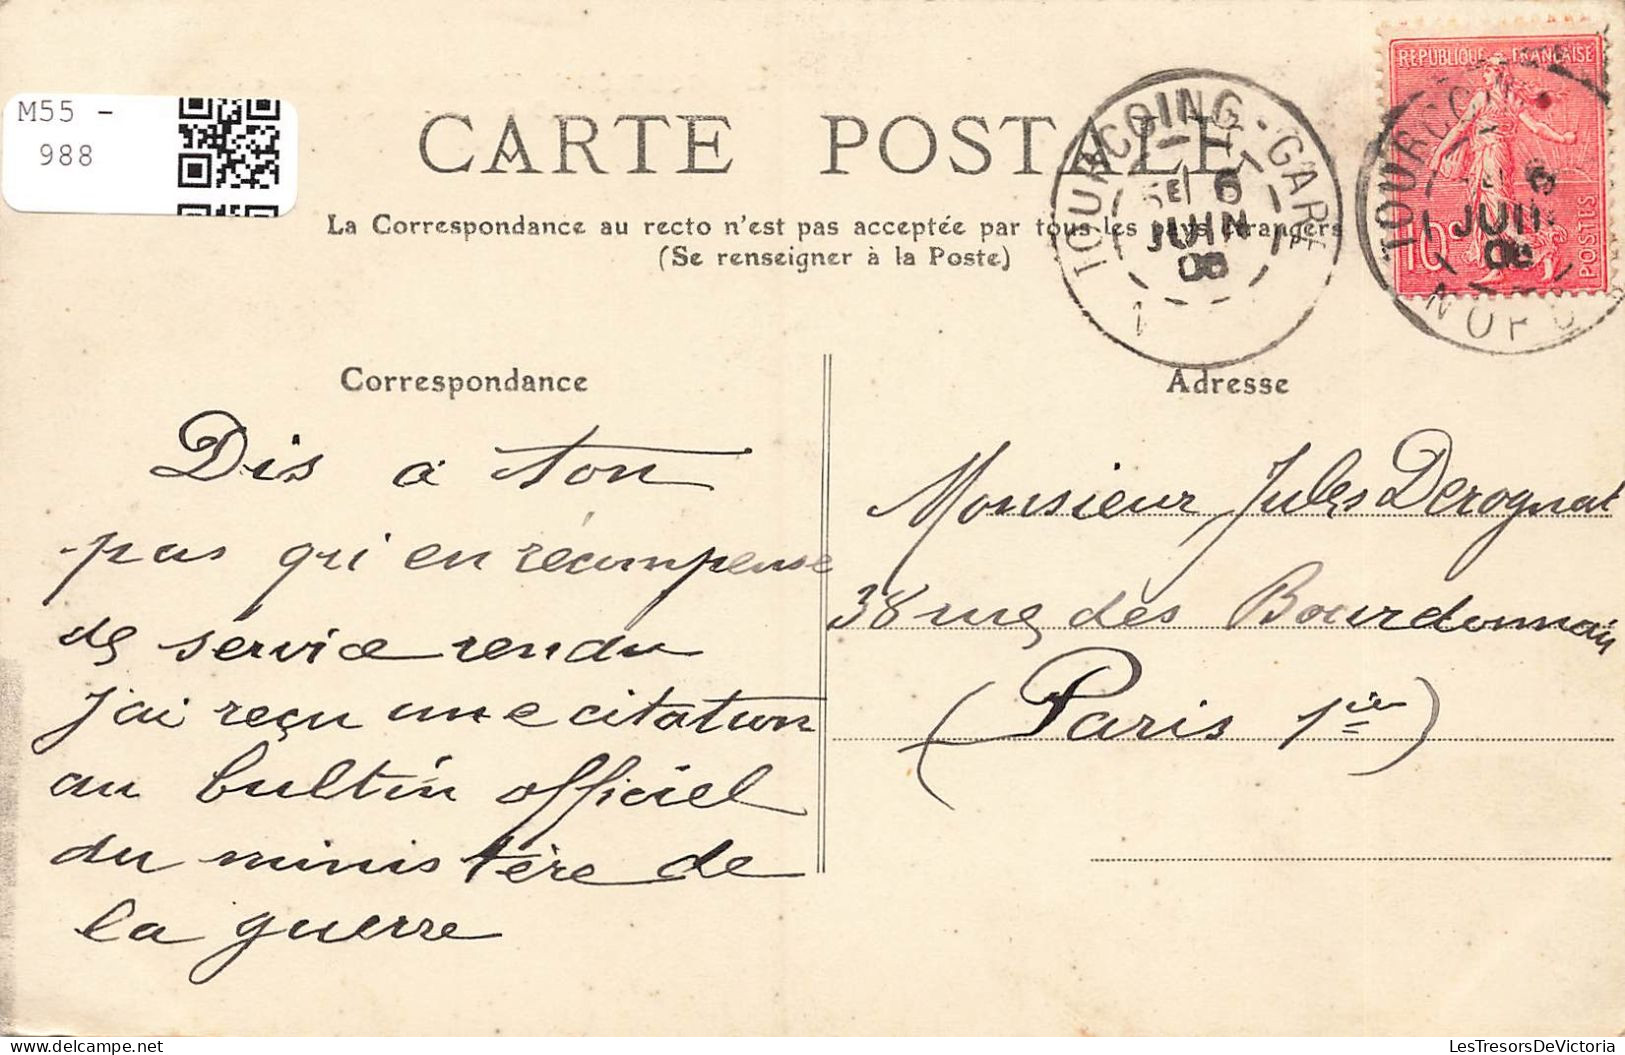 M55 -
988
CARTE POSTALE
La Correspondance au recto n'est pas acceptée par tous les pays étrangers
(Se renseigner à la Poste)
TOURCOING - GARE
5E 6
JUIN
08
REPUBLIQUE FRANÇAISE
10c
POSTES
TOURCOING
JUIN
08
NORD
Correspondance
Dis a ton
pas qui en récompense
de service rendu
j'ai reçu une citation
au bultin officiel
du ministère de
la guerre
Adresse
Monsieur Jules Derognat
38 rue des Bourdonnais
(Paris 1ier)
LesTresorsDeVictoria